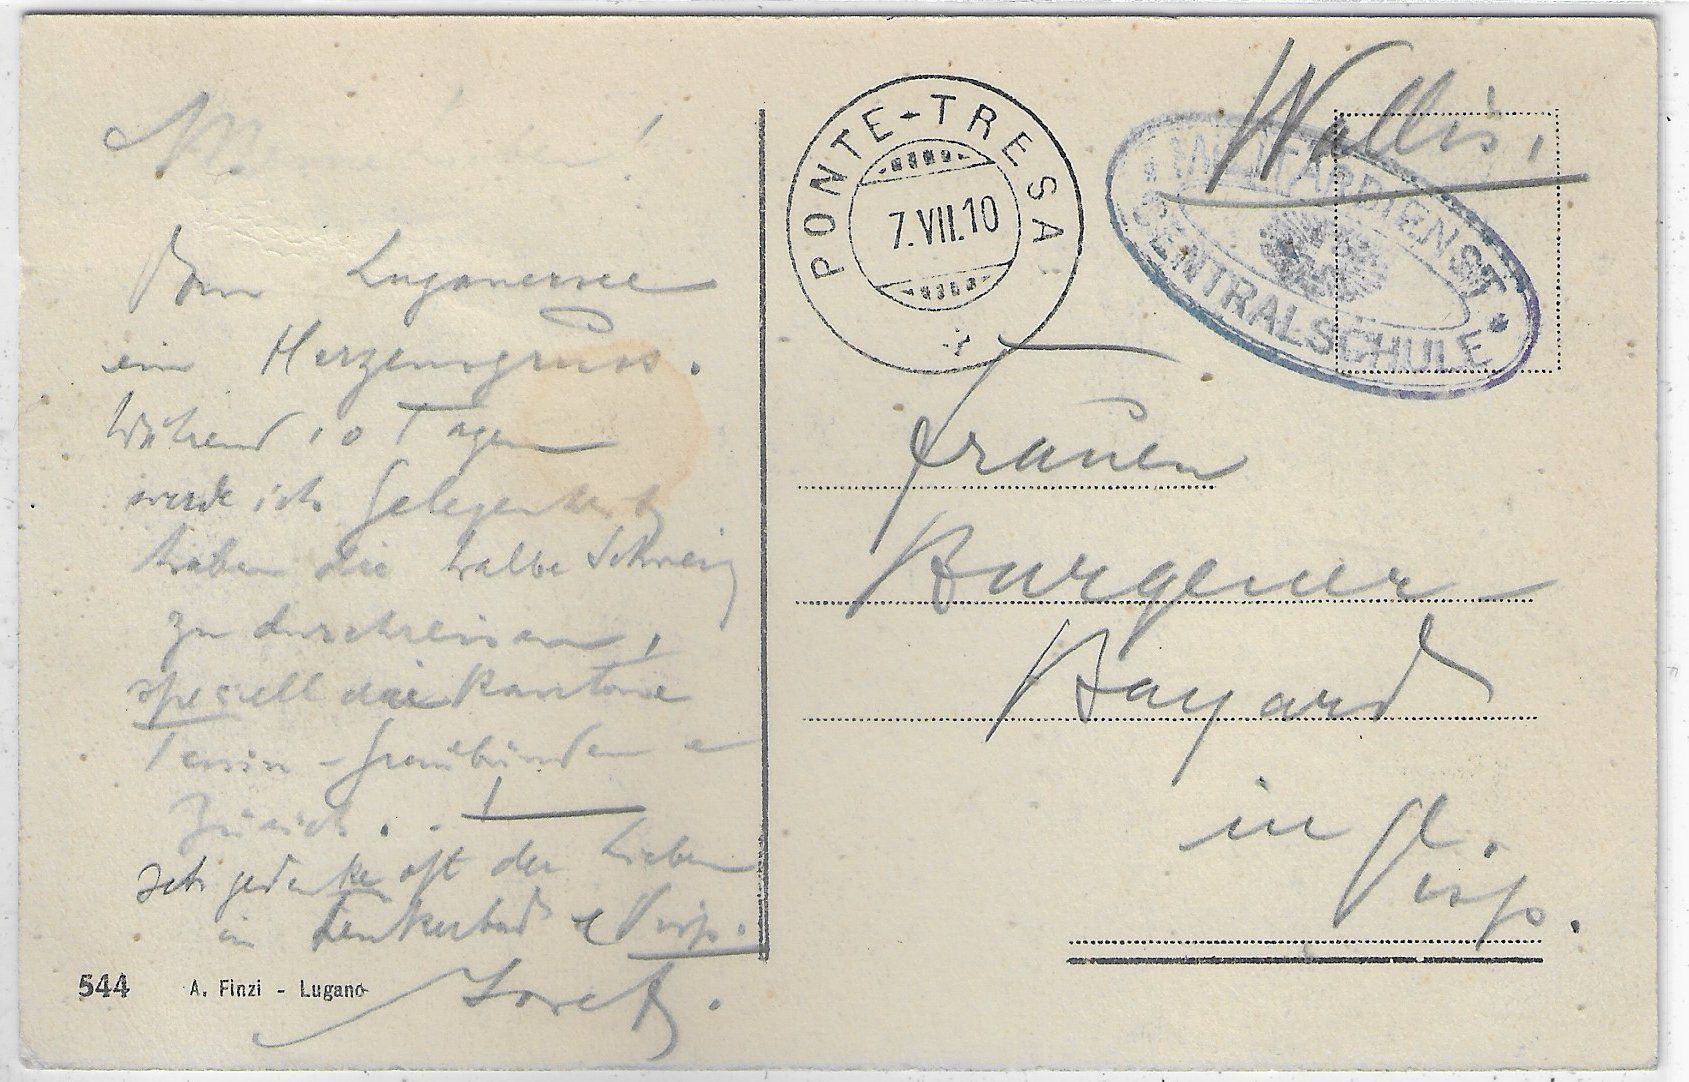 Vom Luganersee
ein Herzensgruss.
Während 10 Tagen
werde ich Gelegenheit
haben die halbe Schweiz
zu durchreisen,
speziell die Kantone
Tessin - Graubünden e
Zürich.
Ich gedenke oft der Lieben
in Leukerbad e Visp.
Loretz.
544 A. Finzi - Lugano
PONTE-TRESA
7.VII.10
Wallis,
MILITÄRDIENST
CENTRALSCHULE
Frauen
Burgener-
Bayard
in
Visp.